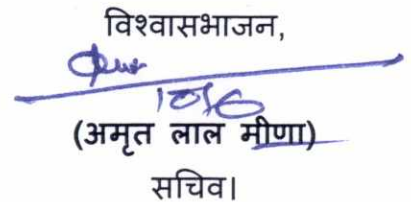 विश्वासभाजन,
(अमृत लाल मीणा)
सचिव।